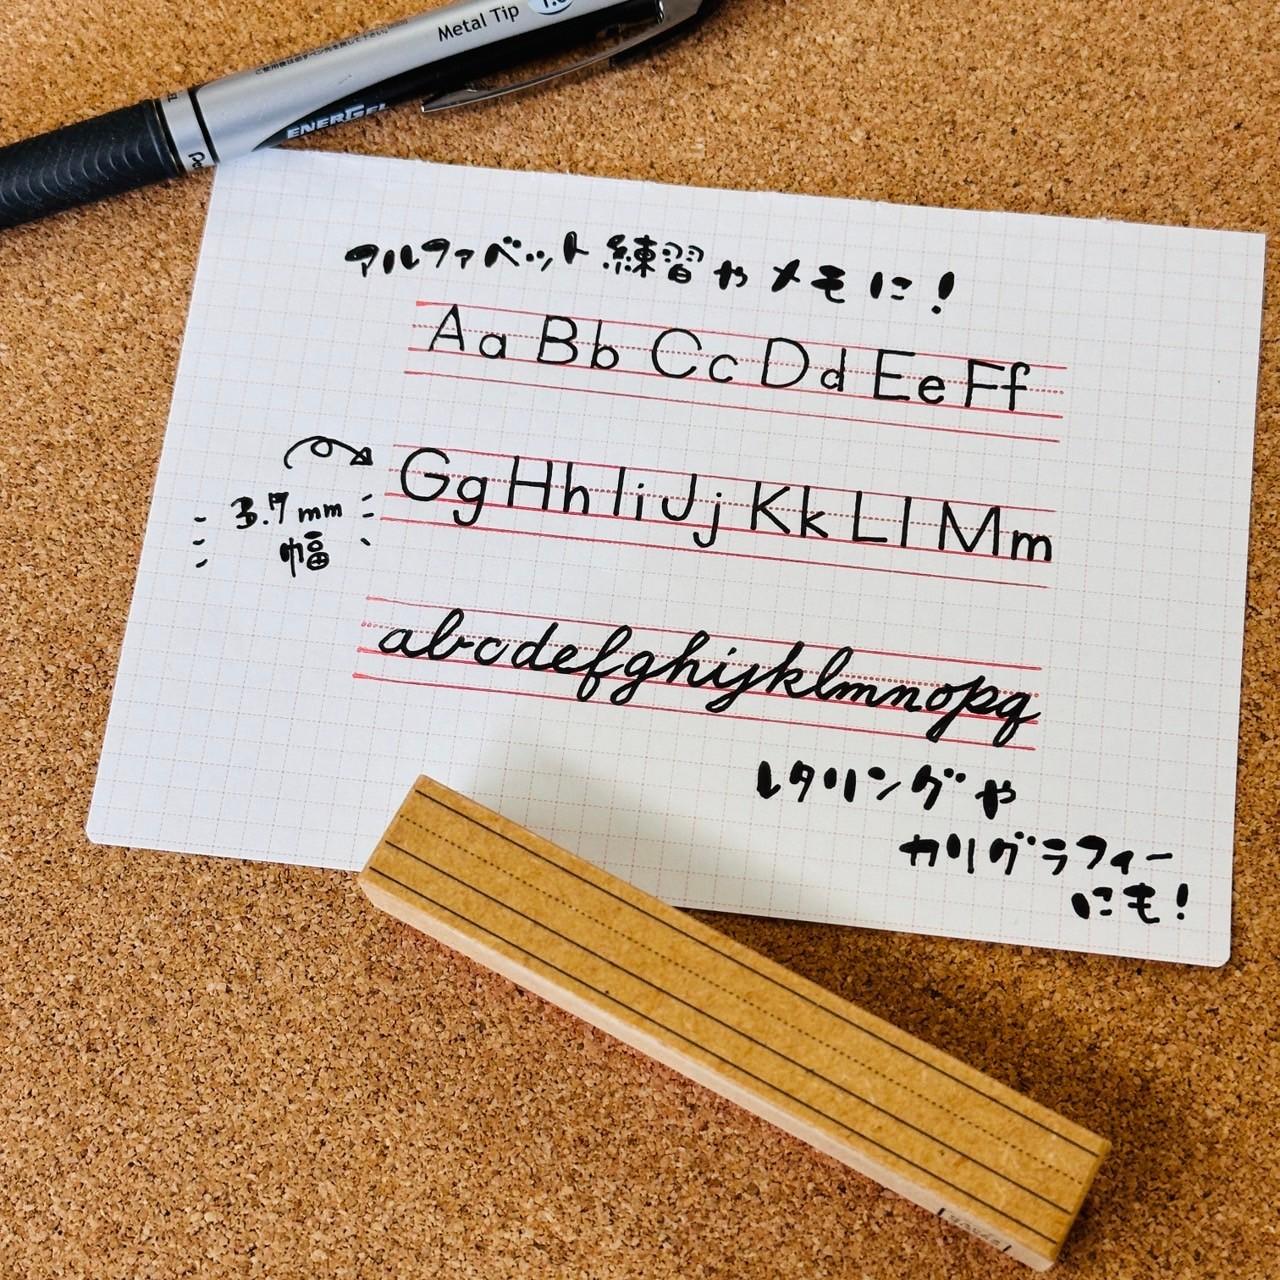 Metal Tip 1.0
ENERGEL
アルファベット練習やメモに!
Aa Bb Cc Dd Ee Ff
Gg Hh Ii Jj Kk Ll Mm
3.7mm
幅
abcdefghijklmnopq
レタリングや
カリグラフィー
にも!